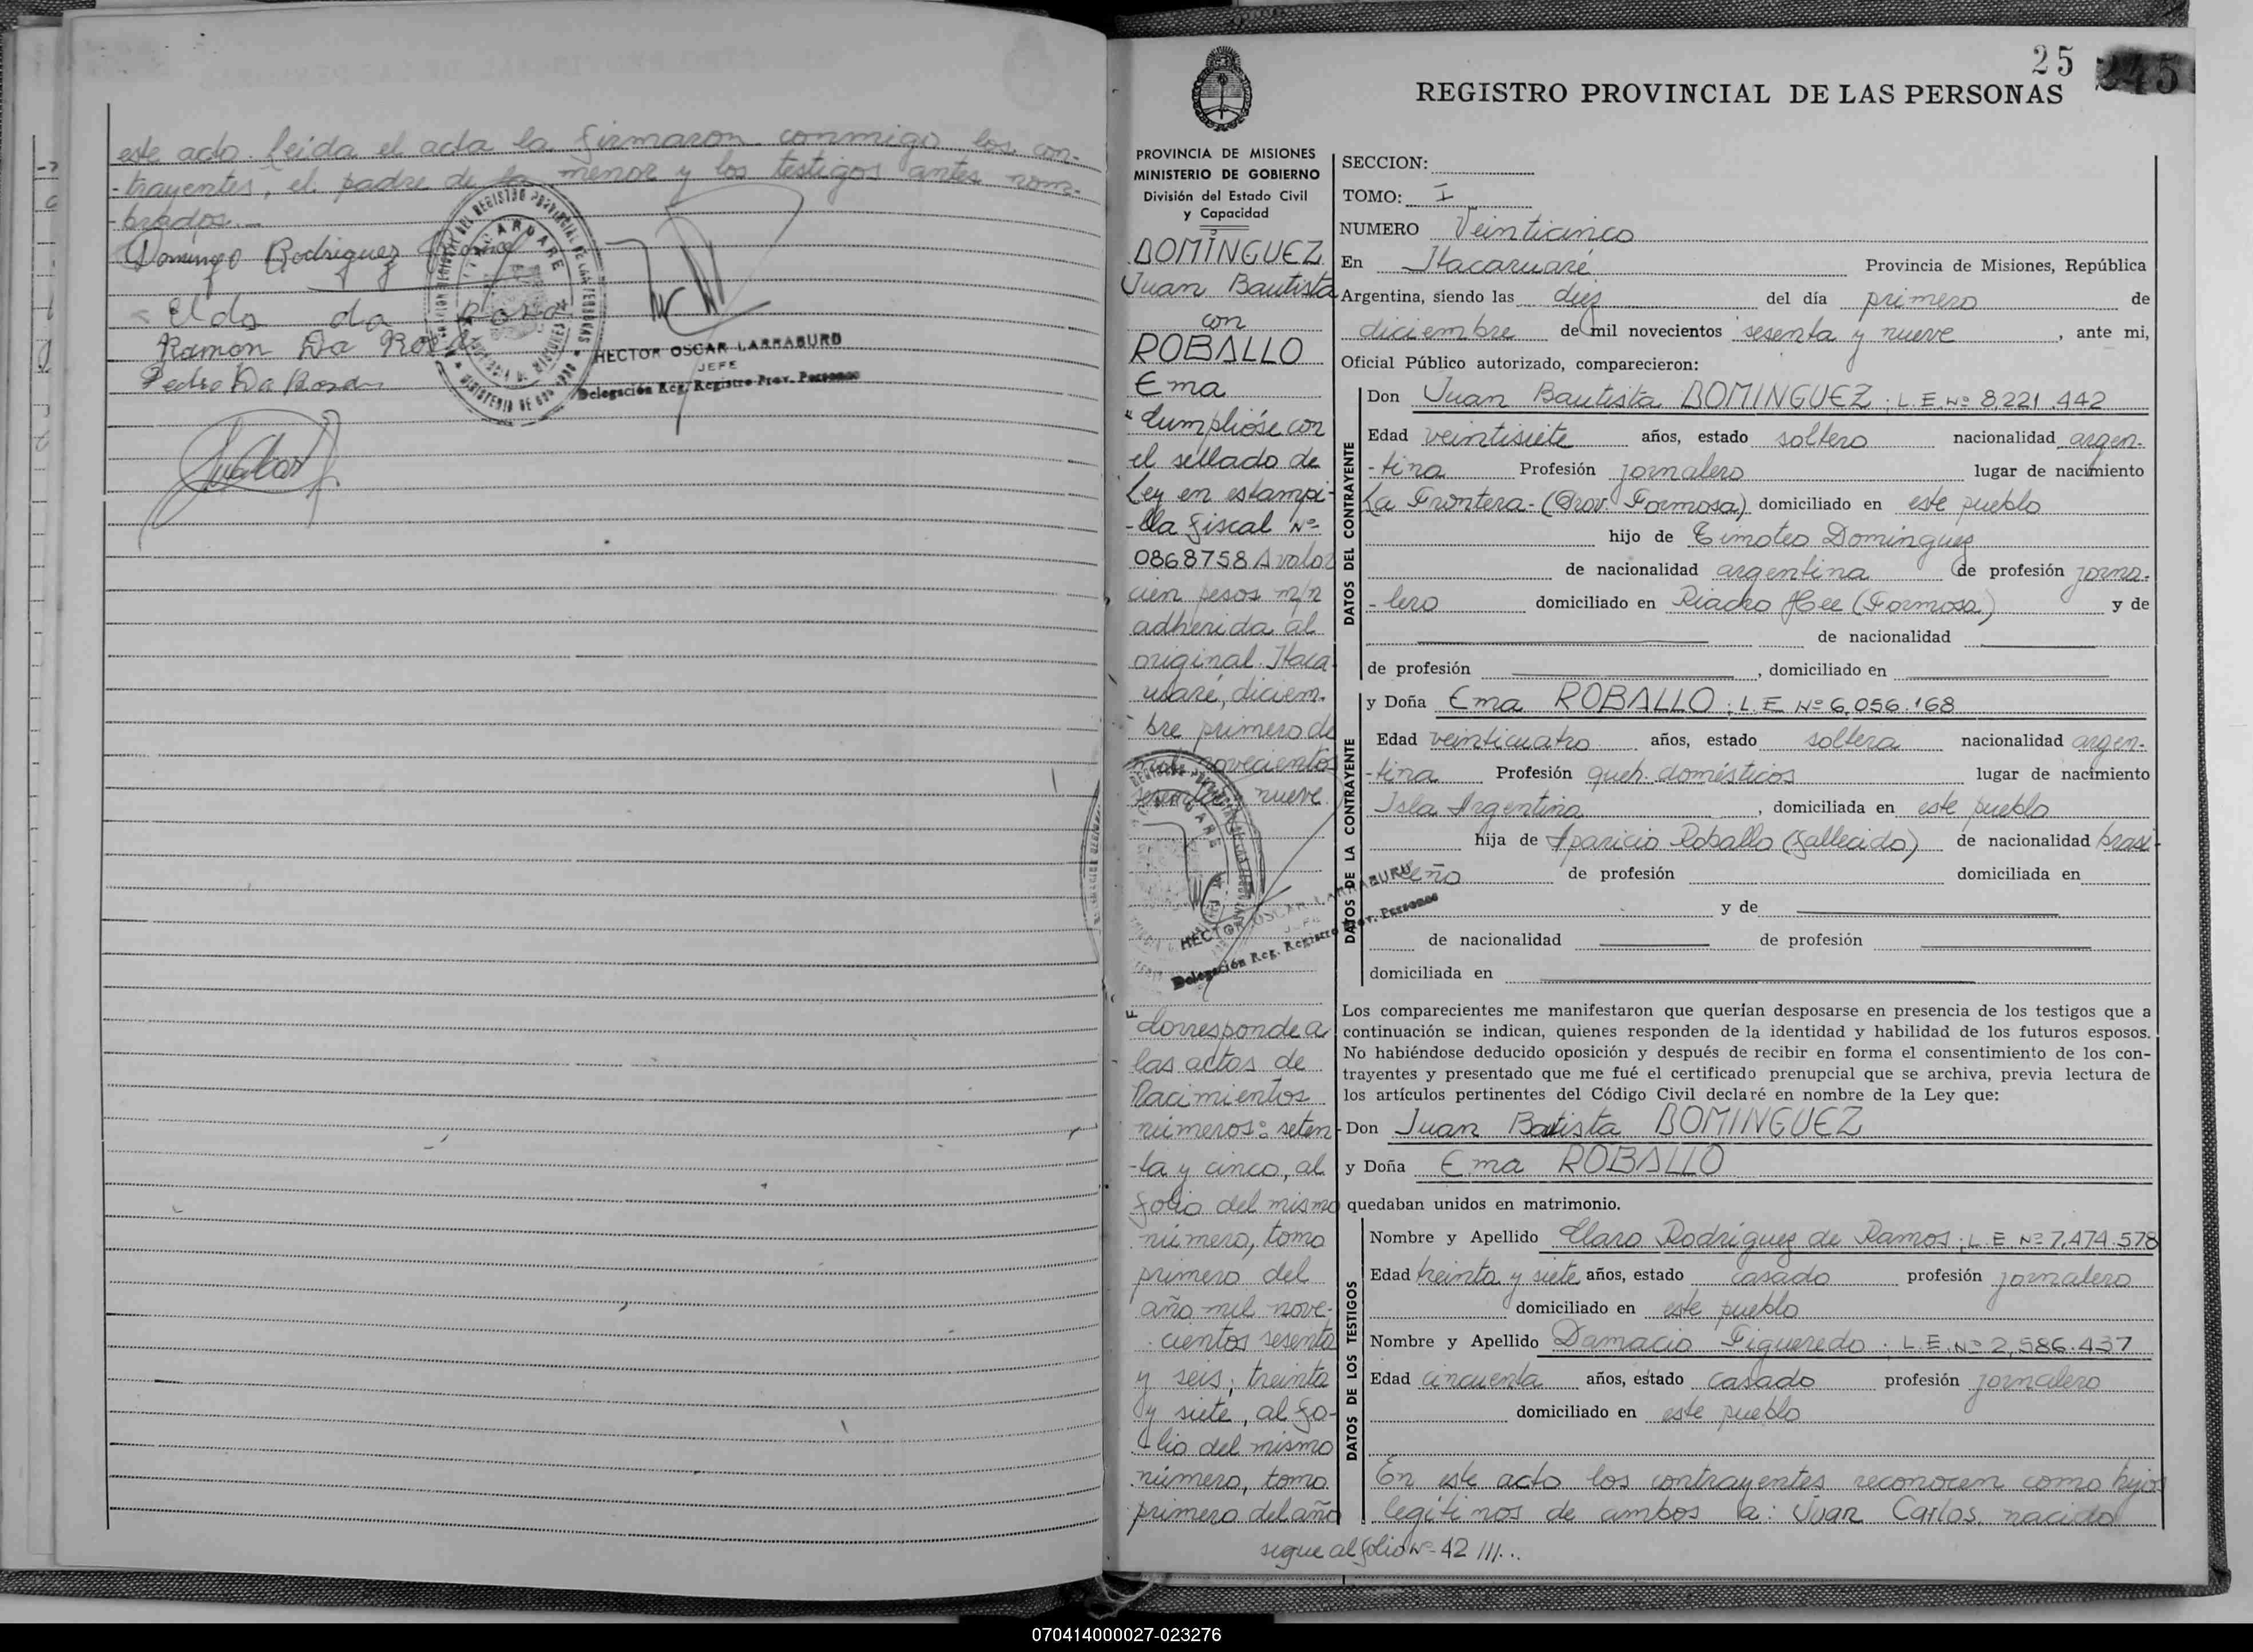 este acto. Leída el acta la firmaron conmigo los con-
-trayentes, el padre de la menor y los testigos antes nom-
-brados.—
Domingo Rodriguez
Elda da Rosa
Ramon Da Rosa
Pedro Da Rosa
HECTOR OSCAR LARRABURU
JEFE
Delegación Reg. Registro Prov. Personas
25
245
REGISTRO PROVINCIAL DE LAS PERSONAS
PROVINCIA DE MISIONES
MINISTERIO DE GOBIERNO
División del Estado Civil
y Capacidad
DOMÍNGUEZ
Juan Bautista
con
ROBALLO
Ema
"Cumplióse con
el sellado de
Ley en estampi-
-lla fiscal Nº
0868758 A valor
cien pesos m/n
adherida al
original. Itaca-
ruaré, diciem-
bre primero de
mil novecientos
sesenta y nueve
HECTOR OSCAR LARRABURU
JEFE
Delegación Reg. Registro Prov. Personas
Corresponde a
las actas de
Nacimientos
números: seten-
-ta y cinco, al
folio del mismo
número, tomo
primero del
año mil nove-
cientos sesenta
y seis; treinta
y siete, al fo-
lio del mismo
número, tomo
primero del año
SECCION:
TOMO: I
NUMERO Veinticinco
En Itacaruaré Provincia de Misiones, República
Argentina, siendo las diez del día primero de
diciembre de mil novecientos sesenta y nueve, ante mi,
Oficial Público autorizado, comparecieron:
DATOS DEL CONTRAYENTE
Don Juan Bautista DOMINGUEZ; L.E. Nº 8.221.442
Edad veintisiete años, estado soltero nacionalidad argen-
-tina Profesión jornalero lugar de nacimiento
La Frontera-(Prov. Formosa) domiciliado en este pueblo
hijo de Timoteo Dominguez
de nacionalidad argentina de profesión jorna-
-lero domiciliado en Riacho Hee (Formosa) y de
de nacionalidad
de profesión , domiciliado en
DATOS DE LA CONTRAYENTE
y Doña Ema ROBALLO; L.E Nº 6.056.168
Edad veinticuatro años, estado soltera nacionalidad argen-
-tina Profesión queh. domésticos lugar de nacimiento
Isla Argentina, domiciliada en este pueblo
hija de Aparicio Roballo (fallecido) de nacionalidad brasi-
leño de profesión domiciliada en
y de
de nacionalidad de profesión
domiciliada en
Los comparecientes me manifestaron que querían desposarse en presencia de los testigos que a
continuación se indican, quienes responden de la identidad y habilidad de los futuros esposos.
No habiéndose deducido oposición y después de recibir en forma el consentimiento de los con-
trayentes y presentado que me fué el certificado prenupcial que se archiva, previa lectura de
los artículos pertinentes del Código Civil declaré en nombre de la Ley que:
Don Juan Batista DOMINGUEZ
y Doña Ema ROBALLO
quedaban unidos en matrimonio.
DATOS DE LOS TESTIGOS
Nombre y Apellido Claro Rodríguez de Ramos; L.E. Nº 7.474.578
Edad treinta y siete años, estado casado profesión jornalero
domiciliado en este pueblo
Nombre y Apellido Damacio Figueredo. L.E. Nº 2.586.437
Edad cincuenta años, estado casado profesión jornalero
domiciliado en este pueblo
En este acto los contrayentes reconocen como hijos
legítimos de ambos a: Juan Carlos, nacido
segue al folio Nº 42 ///...
070414000027-023276